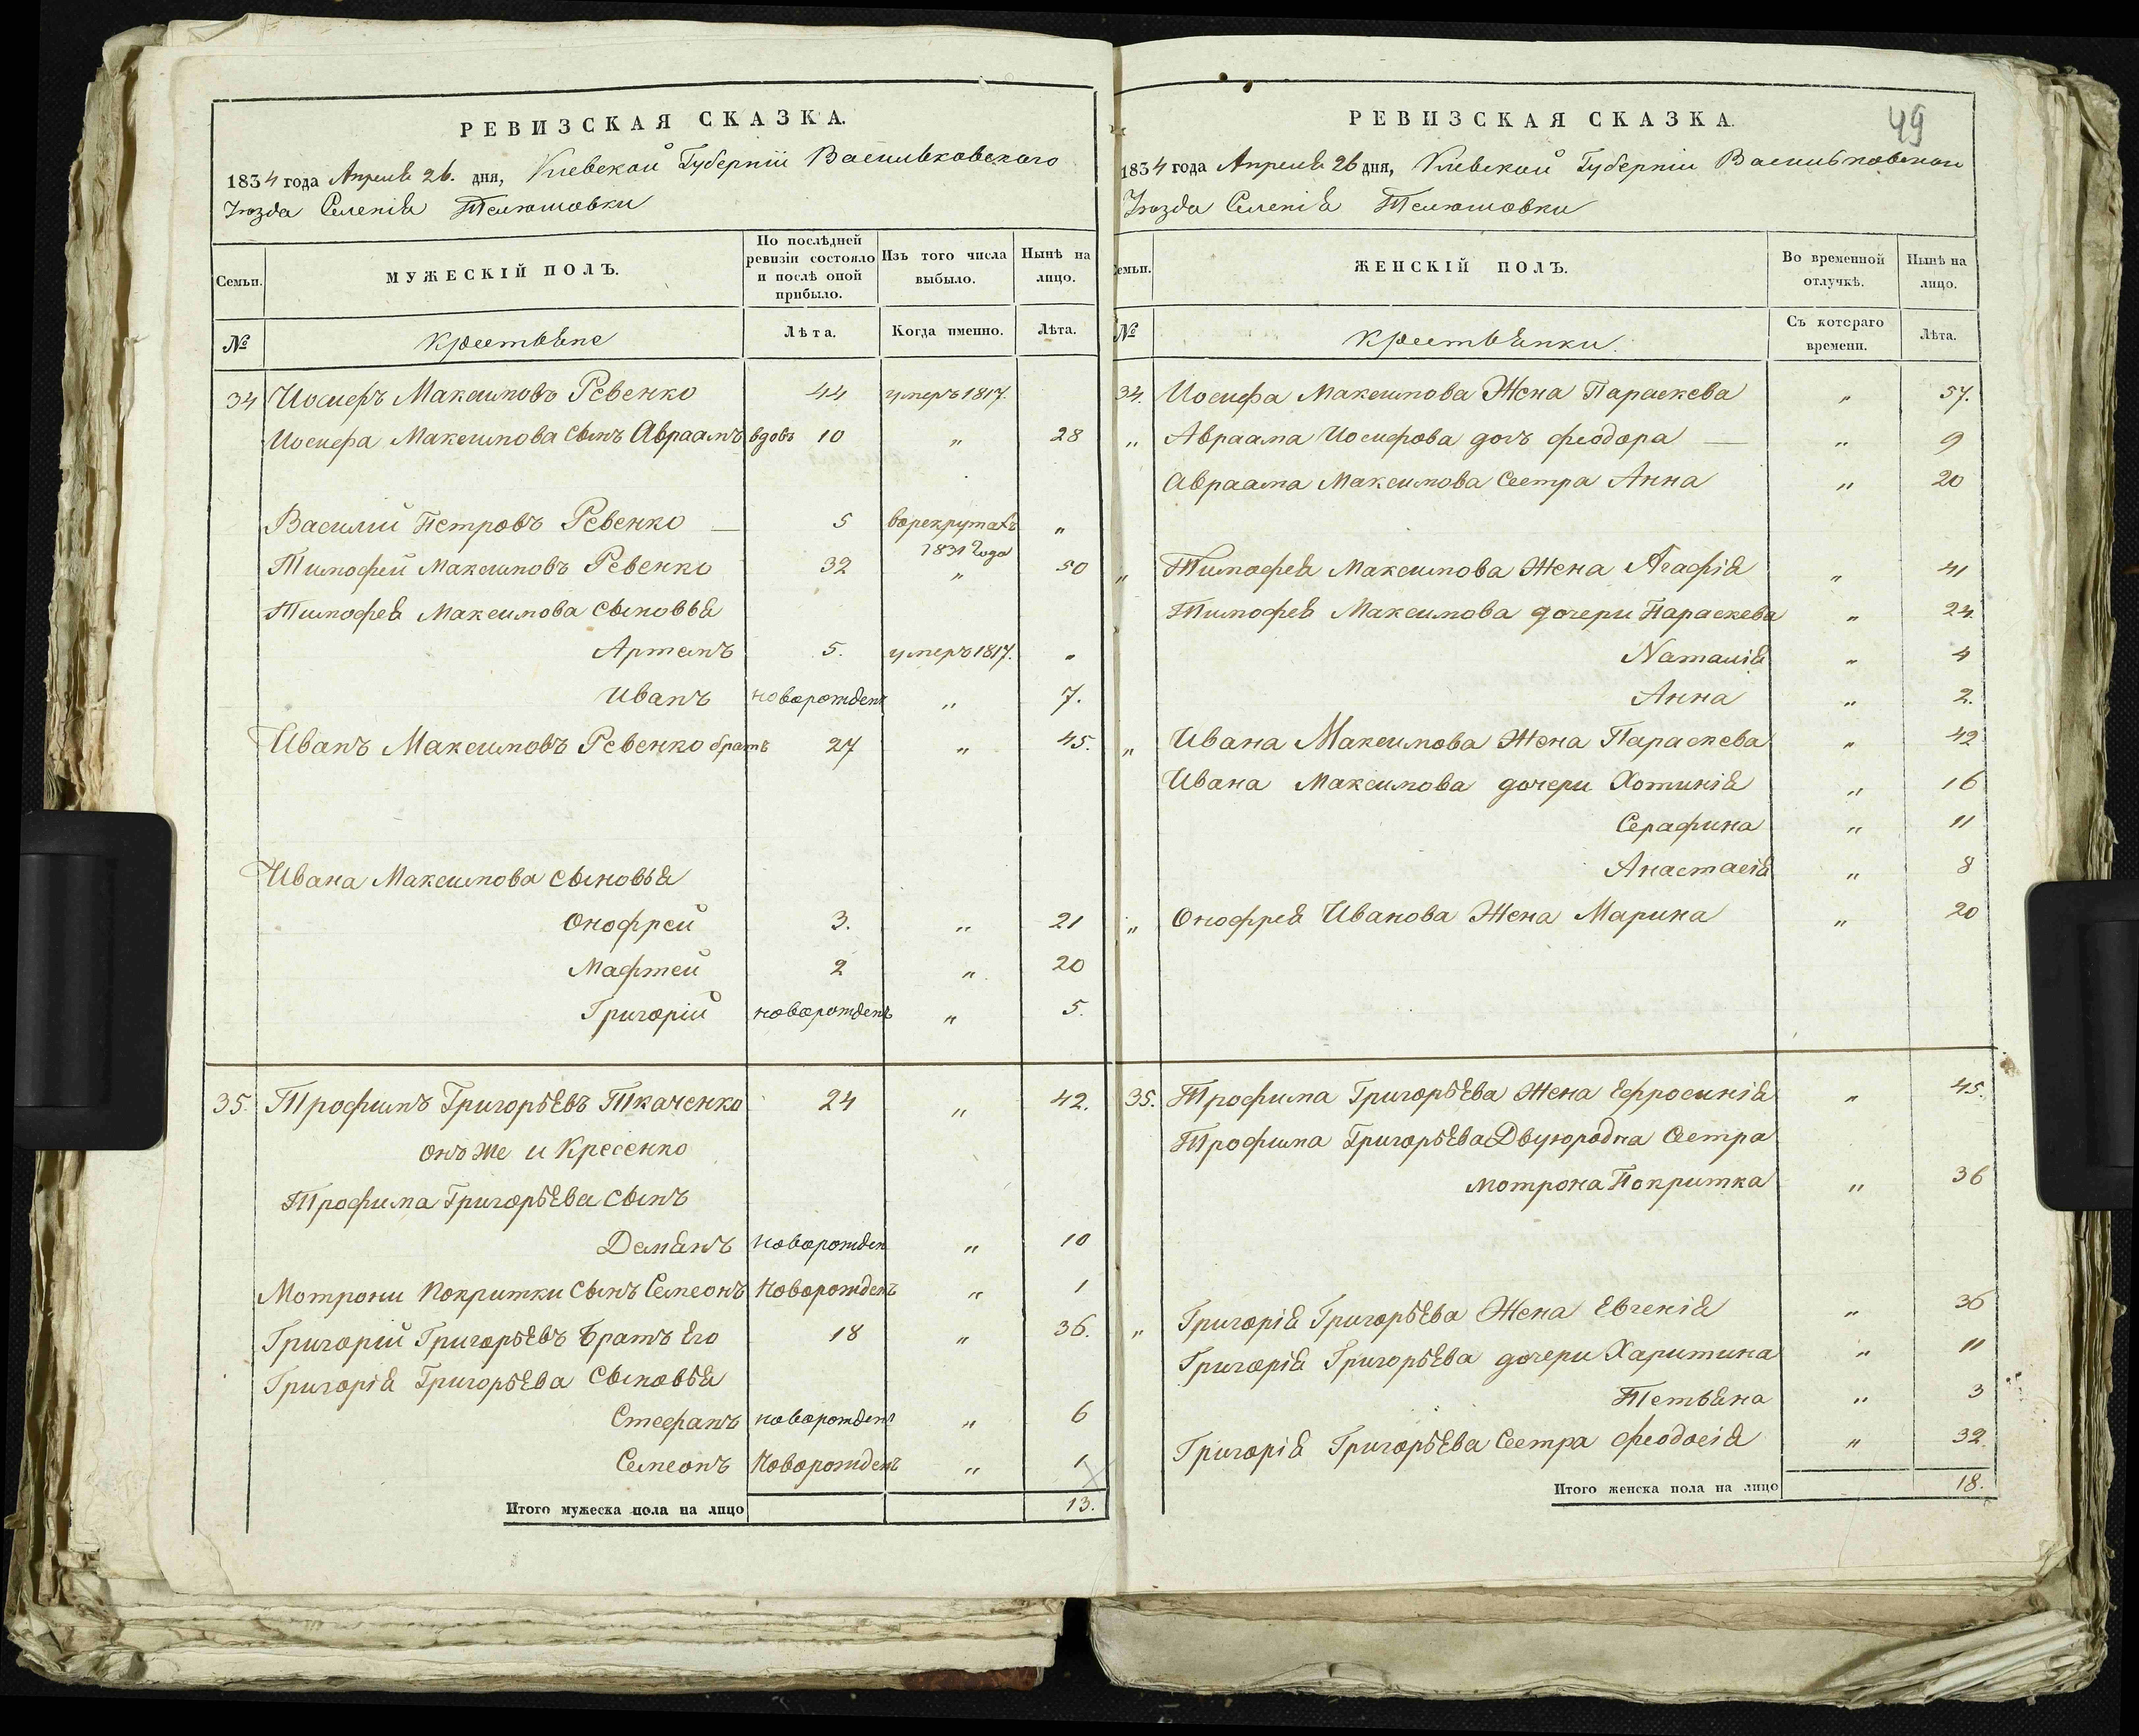 РЕВИЗСКАЯ СКАЗКА.
1834 года Апреля 26. дня, Киевской Губерніи Васильковского
Уюзда Селенія Телюшовки
Семьи.
МУЖЕСКІЙ ПОЛЪ.
По послѣдней ревизіи состояло и послѣ оной прибыло.
Изъ того числа выбыло.
Нынѣ на лицо.
№ Крестьяне Лѣта. Когда именно. Лѣта.
34 Иосифъ Максимовъ Ревенко 44 умеръ 1817.
Иосифа Максимова Сынъ Авраамъ вдовъ 10 „ 28
Василий Петровъ Ревенко — 5 ворекрутахъ „
1831 года
Тимофей Максимовъ Ревенко 32 „ 50
Тимофея Максимова сыновья
Артемъ 5. умеръ 1817. „
Иванъ новорожденъ „ 7.
Иванъ Максимовъ Ревенко братъ 27 „ 45.
Ивана Максимова сыновья
Онофрей 3. „ 21
Мафтей 2 „ 20
Григорій новорожденъ „ 5.
35. Трофимъ Григорьевъ Ткаченко 24 „ 42.
онъ же и Кресенко
Трофима Григорьева сынъ
Демянъ новорожден „ 10
Мотрони Покритки Сынъ Семеонъ Новорожденъ „ 1
Григорій Григорьевъ Братъ Его 18 „ 36.
Григорія Григорьева Сыновья
Стефанъ новорожденъ „ 6
Семеонъ Новорожденъ „ 1
Итого мужеска пола на лицо 13.
49
РЕВИЗСКАЯ СКАЗКА.
1834 года Апреля 26 дня, Киевской Губерніи Васильковской
Уюзда Селенія Телюшовки
Семьи.
ЖЕНСКІЙ ПОЛЪ.
Во временной отлучкѣ.
Нынѣ на лицо.
№ Крестьянки. Съ котораго времени. Лѣта.
34. Иосифа Максимова Жена Параскева „ 57.
„ Авраама Иосифова дочъ Феодора — „ 9
Авраама Максимова Сестра Анна „ 20
„ Тимофея Максимова Жена Агафія „ 41
Тимофея Максимова дочери Параскева „ 24.
Наталія „ 4
Анна „ 2.
„ Ивана Максимова Жена Параскева „ 42
Ивана Максимова дочери Хотинія „ 16
Серафина „ 11
Анастасія „ 8
„ Онофрея Иванова Жена Марина „ 20
35. Трофима Григорьева Жена Ефросинія „ 45.
Трофима Григорьева Двуюродна Сестра
Мотрона Покритка „ 36
„ Григорія Григорьева Жена Евгенія „ 36
Григорія Григорьева дочери Харитина „ 11
Тетьяна „ 3
Григорія Григорьева Сестра Феодосія „ 32
Итого женска пола на лицо 18.